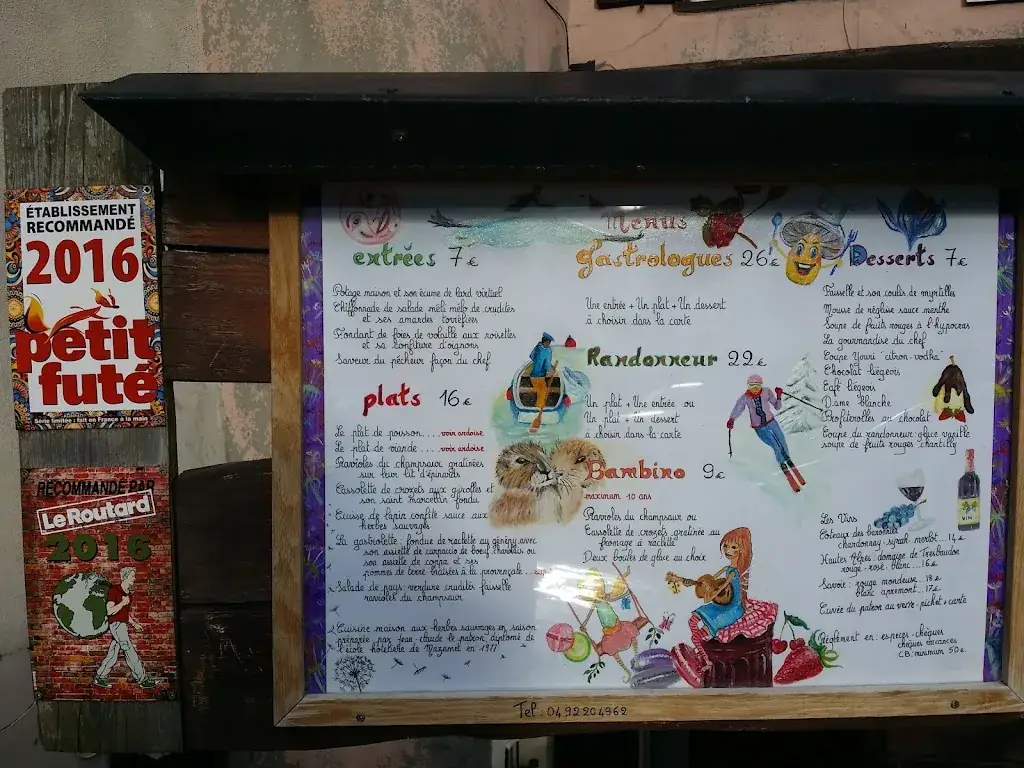 ÉTABLISSEMENT
RECOMMANDÉ
2016
petit
futé
Série limitée : fait en France à la main
RECOMMANDÉ PAR
Le Routard
2016
Menus
entrées 7€
Potage maison et son écume de lard virtuel
Chiffonnade de salade méli mélo de crudités
et ses amandes torréfiées
Fondant de foies de volaille aux noisettes
et sa confiture d'oignons
Saveur du pêcheur façon du chef
plats 16€
Le plat de poisson .... voir ardoise
Le plat de viande .... voir ardoise
Ravioles du champsaur gratinées
sur leur lit d'épinards
Cassolette de crozets aux girolles et
son saint marcellin fondu
Cuisse de lapin confite sauce aux
herbes sauvages
La gasbiolette : fondue de raclette au génépy avec
son assiette de carpaccio de boeuf charolais ou
son assiette de coppa et ses
pommes de terre braisées à la provençale
Salade de pays : verdure crudités faisselle
ravioles du champsaur
Cuisine maison aux herbes sauvages en saison
préparée par jean-claude le patron diplômé de
l'école hôtelière de Mazamet en 1977
gastrologues 26€
Une entrée + Un plat + Un dessert
à choisir dans la carte
Randonneur 22€
Un plat + Une entrée ou
Un plat + Un dessert
à choisir dans la carte
Bambino 9€
maximum 10 ans
Ravioles du champsaur ou
Cassolette de crozets gratinée au
fromage à raclette
Deux boules de glace au choix
Desserts 7€
Faisselle et son coulis de myrtilles
Mousse de réglisse sauce menthe
Soupe de fruits rouges à l'hypocras
La gourmandise du chef
Coupe Youri "citron-vodka"
Chocolat liégeois
Café liégeois
Dame blanche
Profiteroles au chocolat
Coupe du randonneur glace vanille
soupe de fruits rouges chantilly
VIN
Les Vins
Coteaux des baronnies
chardonnay - syrah - merlot .. 14€
Hautes Alpes domaine de Tresbaudon
rouge - rosé - blanc ... 16€
Savoie : rouge mondeuse .. 18€
blanc apremont .. 17€
Cuvée du patron au verre - pichet + carte
Règlement en : espèces - chèques
chèques vacances
CB : minimum 50€
Tel : 0492204962